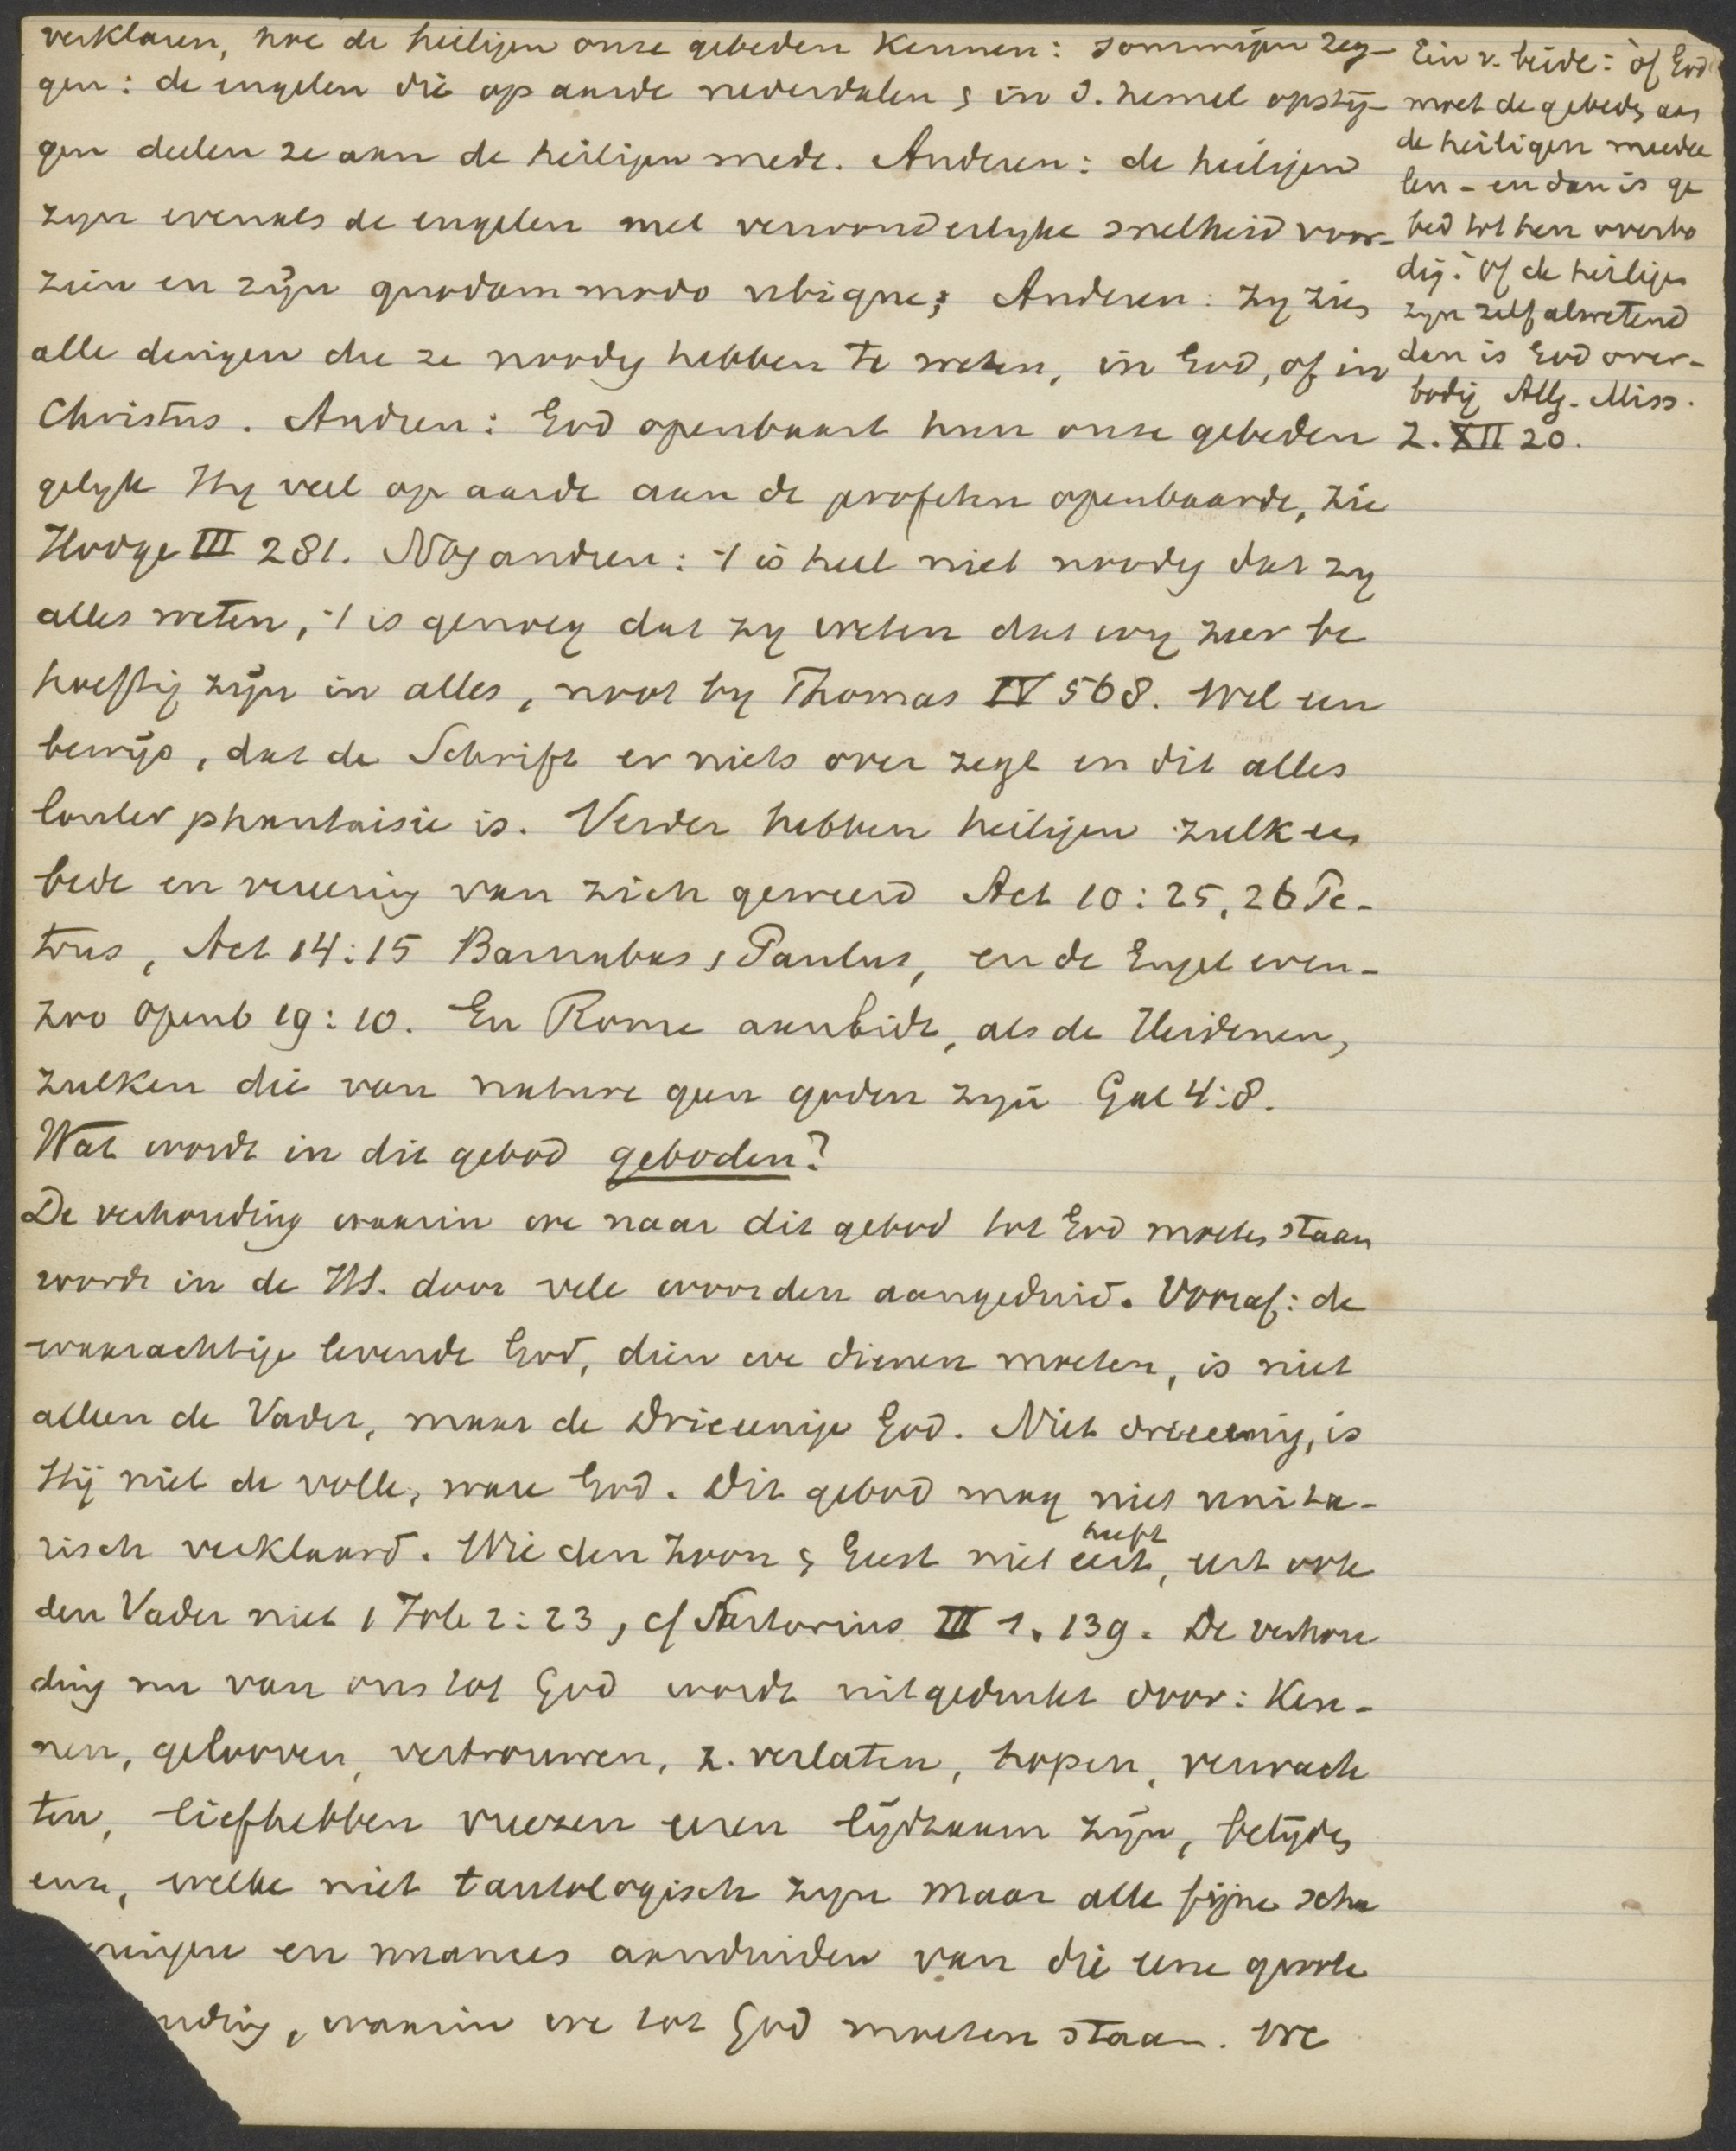 verklaren, hoe de heiligen onze gebeden kennen: sommigen zeg-
gen: de engelen die op aarde nederdalen & in d. hemel opstij-
gen deelen ze aan de heiligen mede. Anderen: de heiligen
zyn evenals de engelen met verwonderlyke snelheid voor-
zien en zijn quodammodo ubique; Anderen: zy zien
alle dingen die ze noodig hebben te weten, in God, of in
Christus. Andren: God openbaart hun onze gebeden
gelyk Hy veel op aarde aan de profeten openbaarde, zie
Hodge III 281. Nog andren: 't is heel niet noodig dat zy
alles weten, 't is genoeg dat zy weten dat wy zeer be
hoeftig zijn in alles, noot by Thomas IV 568. Wel een
bewijs, dat de Schrift er niets over zegt en dit alles
louter phantaisie is. Verder hebben heiligen zulk een
bede en vereering van zich geweerd Act 10:25,26 Pe-
trus, Act 14:15 Barnabas & Paulus, en de Engel even-
zoo Openb 19:10. En Rome aanbidt, als de Heidenen,
zulken die van nature geen goden zyn Gal 4:8.
Wat wordt in dit gebod geboden?
De verhouding waarin we naar dit gebod tot God moeten staan
wordt in de HS. door vele woorden aangeduid. Vooraf: de
waarachtige levende God, dien we dienen moeten, is niet
alleen de Vader, maar de Drieeenige God. Niet drieeenig, is
Hij niet de volle, ware God. Dit gebod mag niet unita-
risch verklaard. Wie den Zoon & Geest niet eert, eert ook
heeft
den Vader niet 1 Joh 2:23, cf Sartorius III 1. 139. De verhou
ding nu van ons tot God wordt uitgedrukt door: Ken-
nen, gelooven, vertrouwen, z. verlaten, hopen, verwach
ten, liefhebben vreezen eeren lijdzaam zijn, belijden
enz, welke niet tautologisch zyn maar alle fijne scha
eringen en nuances aanduiden van die eene groote
uding, waarin we tot God moeten staan. We
Een v. beide: òf God
moet de gebeden aan
de heiligen meedee
len - en dan is ge
bed tot hen overbo
dig: òf de heiligen
zyn zelf alwetend
dan is God over-
bodig Allg. Miss.
Z. XII 20.